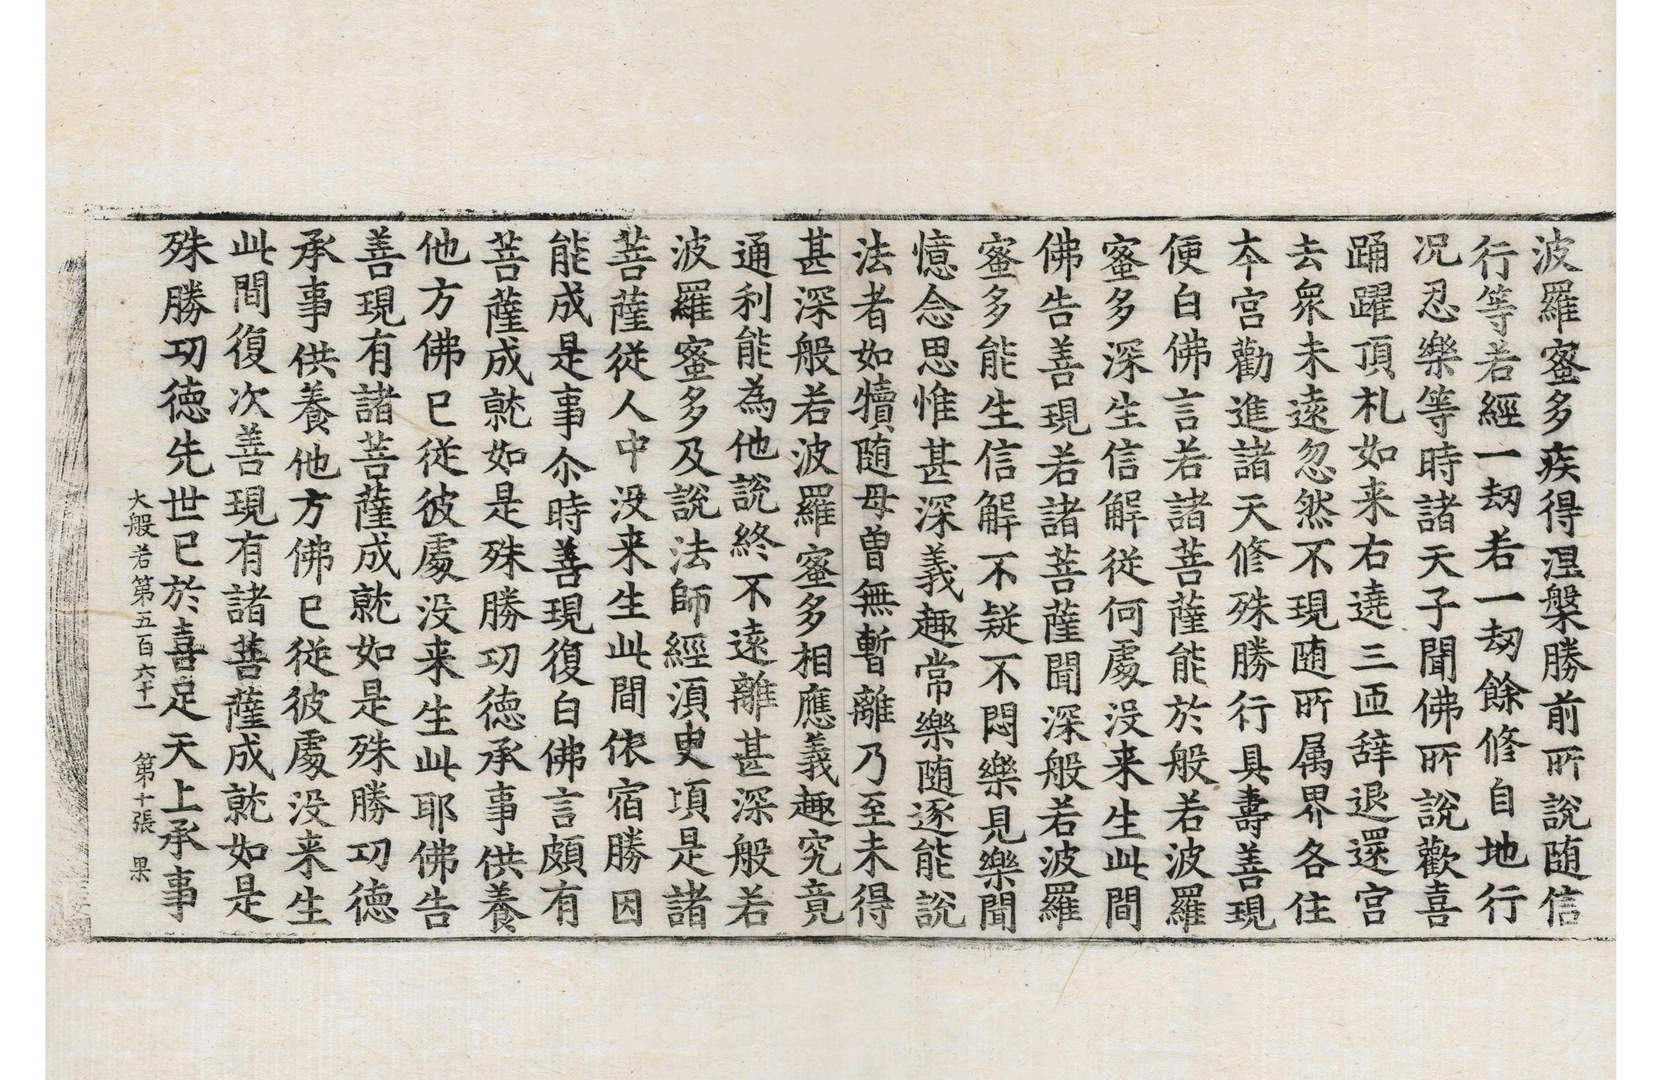 波羅蜜多疾得涅槃勝前所說随信
行等若經一刼若一刼餘修自地行
況忍樂等時諸天子聞佛所說歡喜
踊躍頂礼如来右遶三匝辞退還宮
去衆未遠忽然不現随所属界各住
夲宮勸進諸天修殊勝行具壽善現
便白佛言若諸菩薩能於般若波羅
蜜多深生信解從何處没来生此間
佛告善現若諸菩薩聞深般若波羅
蜜多能生信解不疑不悶樂見樂聞
憶念思惟甚深義趣常樂随逐能說
法者如犢随母曽無暫離乃至未得
甚深般若波羅蜜多相應義趣究竟
通利能為他說終不遠離甚深般若
波羅蜜多及說法師經湏臾頃是諸
菩薩從人中没来生此間依宿勝因
能成是事尒時善現復白佛言頗有
菩薩成就如是殊勝功德承事供養
他方佛已從彼處没来生此耶佛告
善現有諸菩薩成就如是殊勝功德
承事供養他方佛已從彼處没来生
此間復次善現有諸菩薩成就如是
殊勝功德先世已於喜足天上承事
大般若第五百六十一 第十張 果